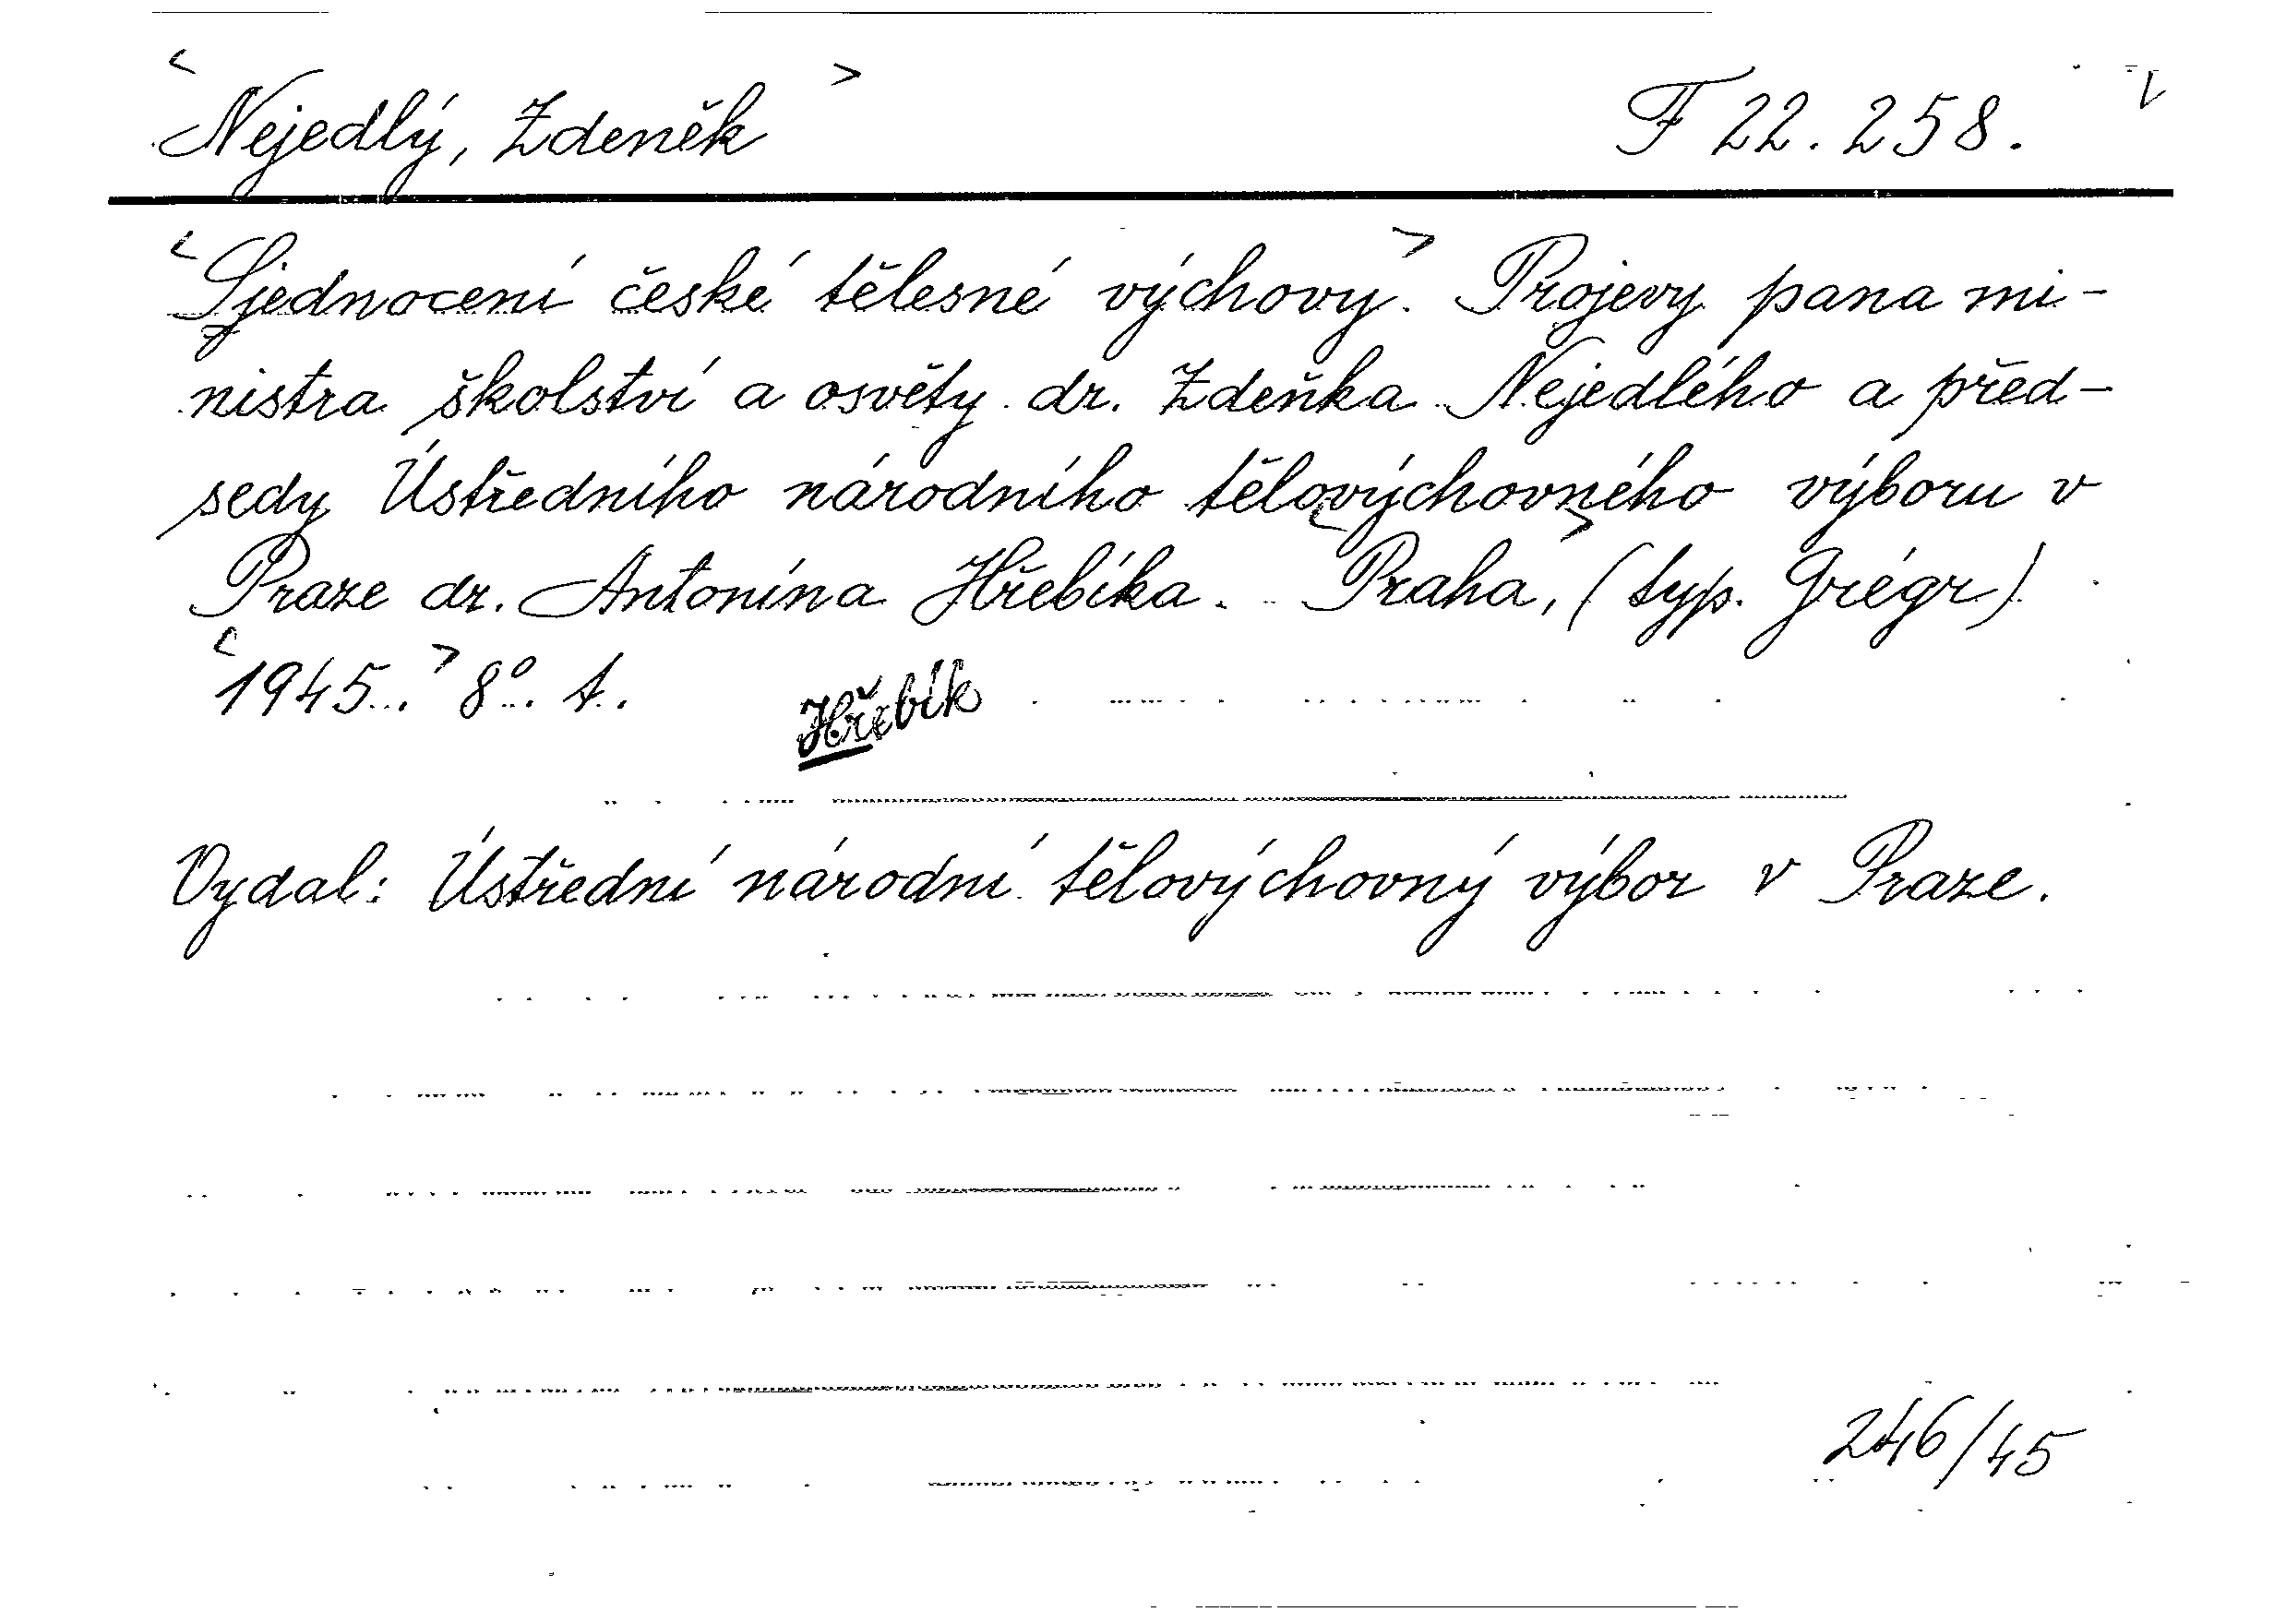 <Nejedlý, Zdeněk> F 22.258. V
<Sjednocení české tělesné výchovy.> Projevy pana mi-
nistra školství a osvěty dr. Zdeňka Nejedlého a před-
sedy Ústředního národního tělovýchovného výboru v
Praze dr. Antonína Hřebíka. <Praha,> (typ. Grégr)
<1945.> 8°. t.
Hřebík
Vydal: Ústřední národní tělovýchovný výbor v Praze.
246/45